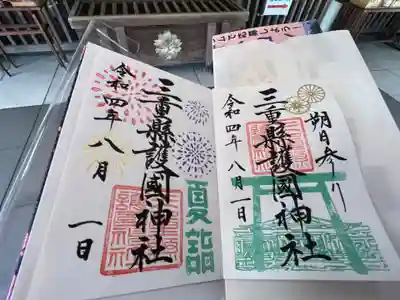 三重縣護國神社
令和四年八月一日
夏詣
朔日参り
三重縣護國神社
令和四年八月一日